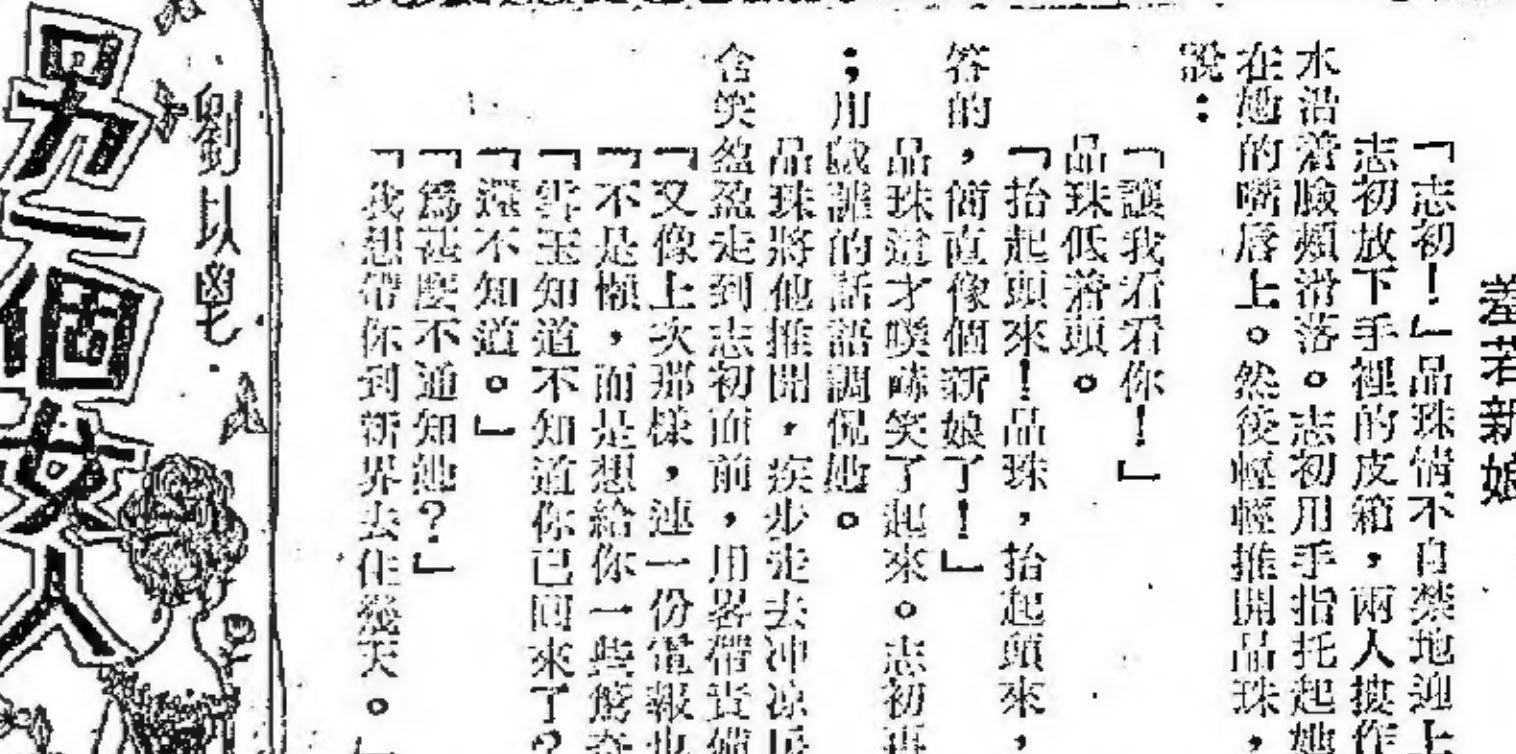 羞若新娘
「志初！」品珠情不自禁地迎上
志初放下手裡的皮箱，兩人擁作
水沿着臉頰滑落。志初用手指托起她
在她的嘴唇上。然後輕輕推開品珠，
說：
「讓我看看你！」
品珠低着頭。
「抬起頭來！品珠，抬起頭來，
答的，簡直像個新娘了！」
品珠這才噗哧笑了起來。志初再
；用戲謔的話語調侃她。
品珠將他推開，疾步走去冲凉房
含笑盈盈走到志初面前，用畧帶責備
「又像上次那樣，連一份電報也
「不是懶，而是想給你一些驚奇
「雲玉知道不知道你已回來了？
「還不知道。」
「爲甚麼不通知她？」
「我想帶你到新界去住幾天。」
劉以鬯
另一個女人